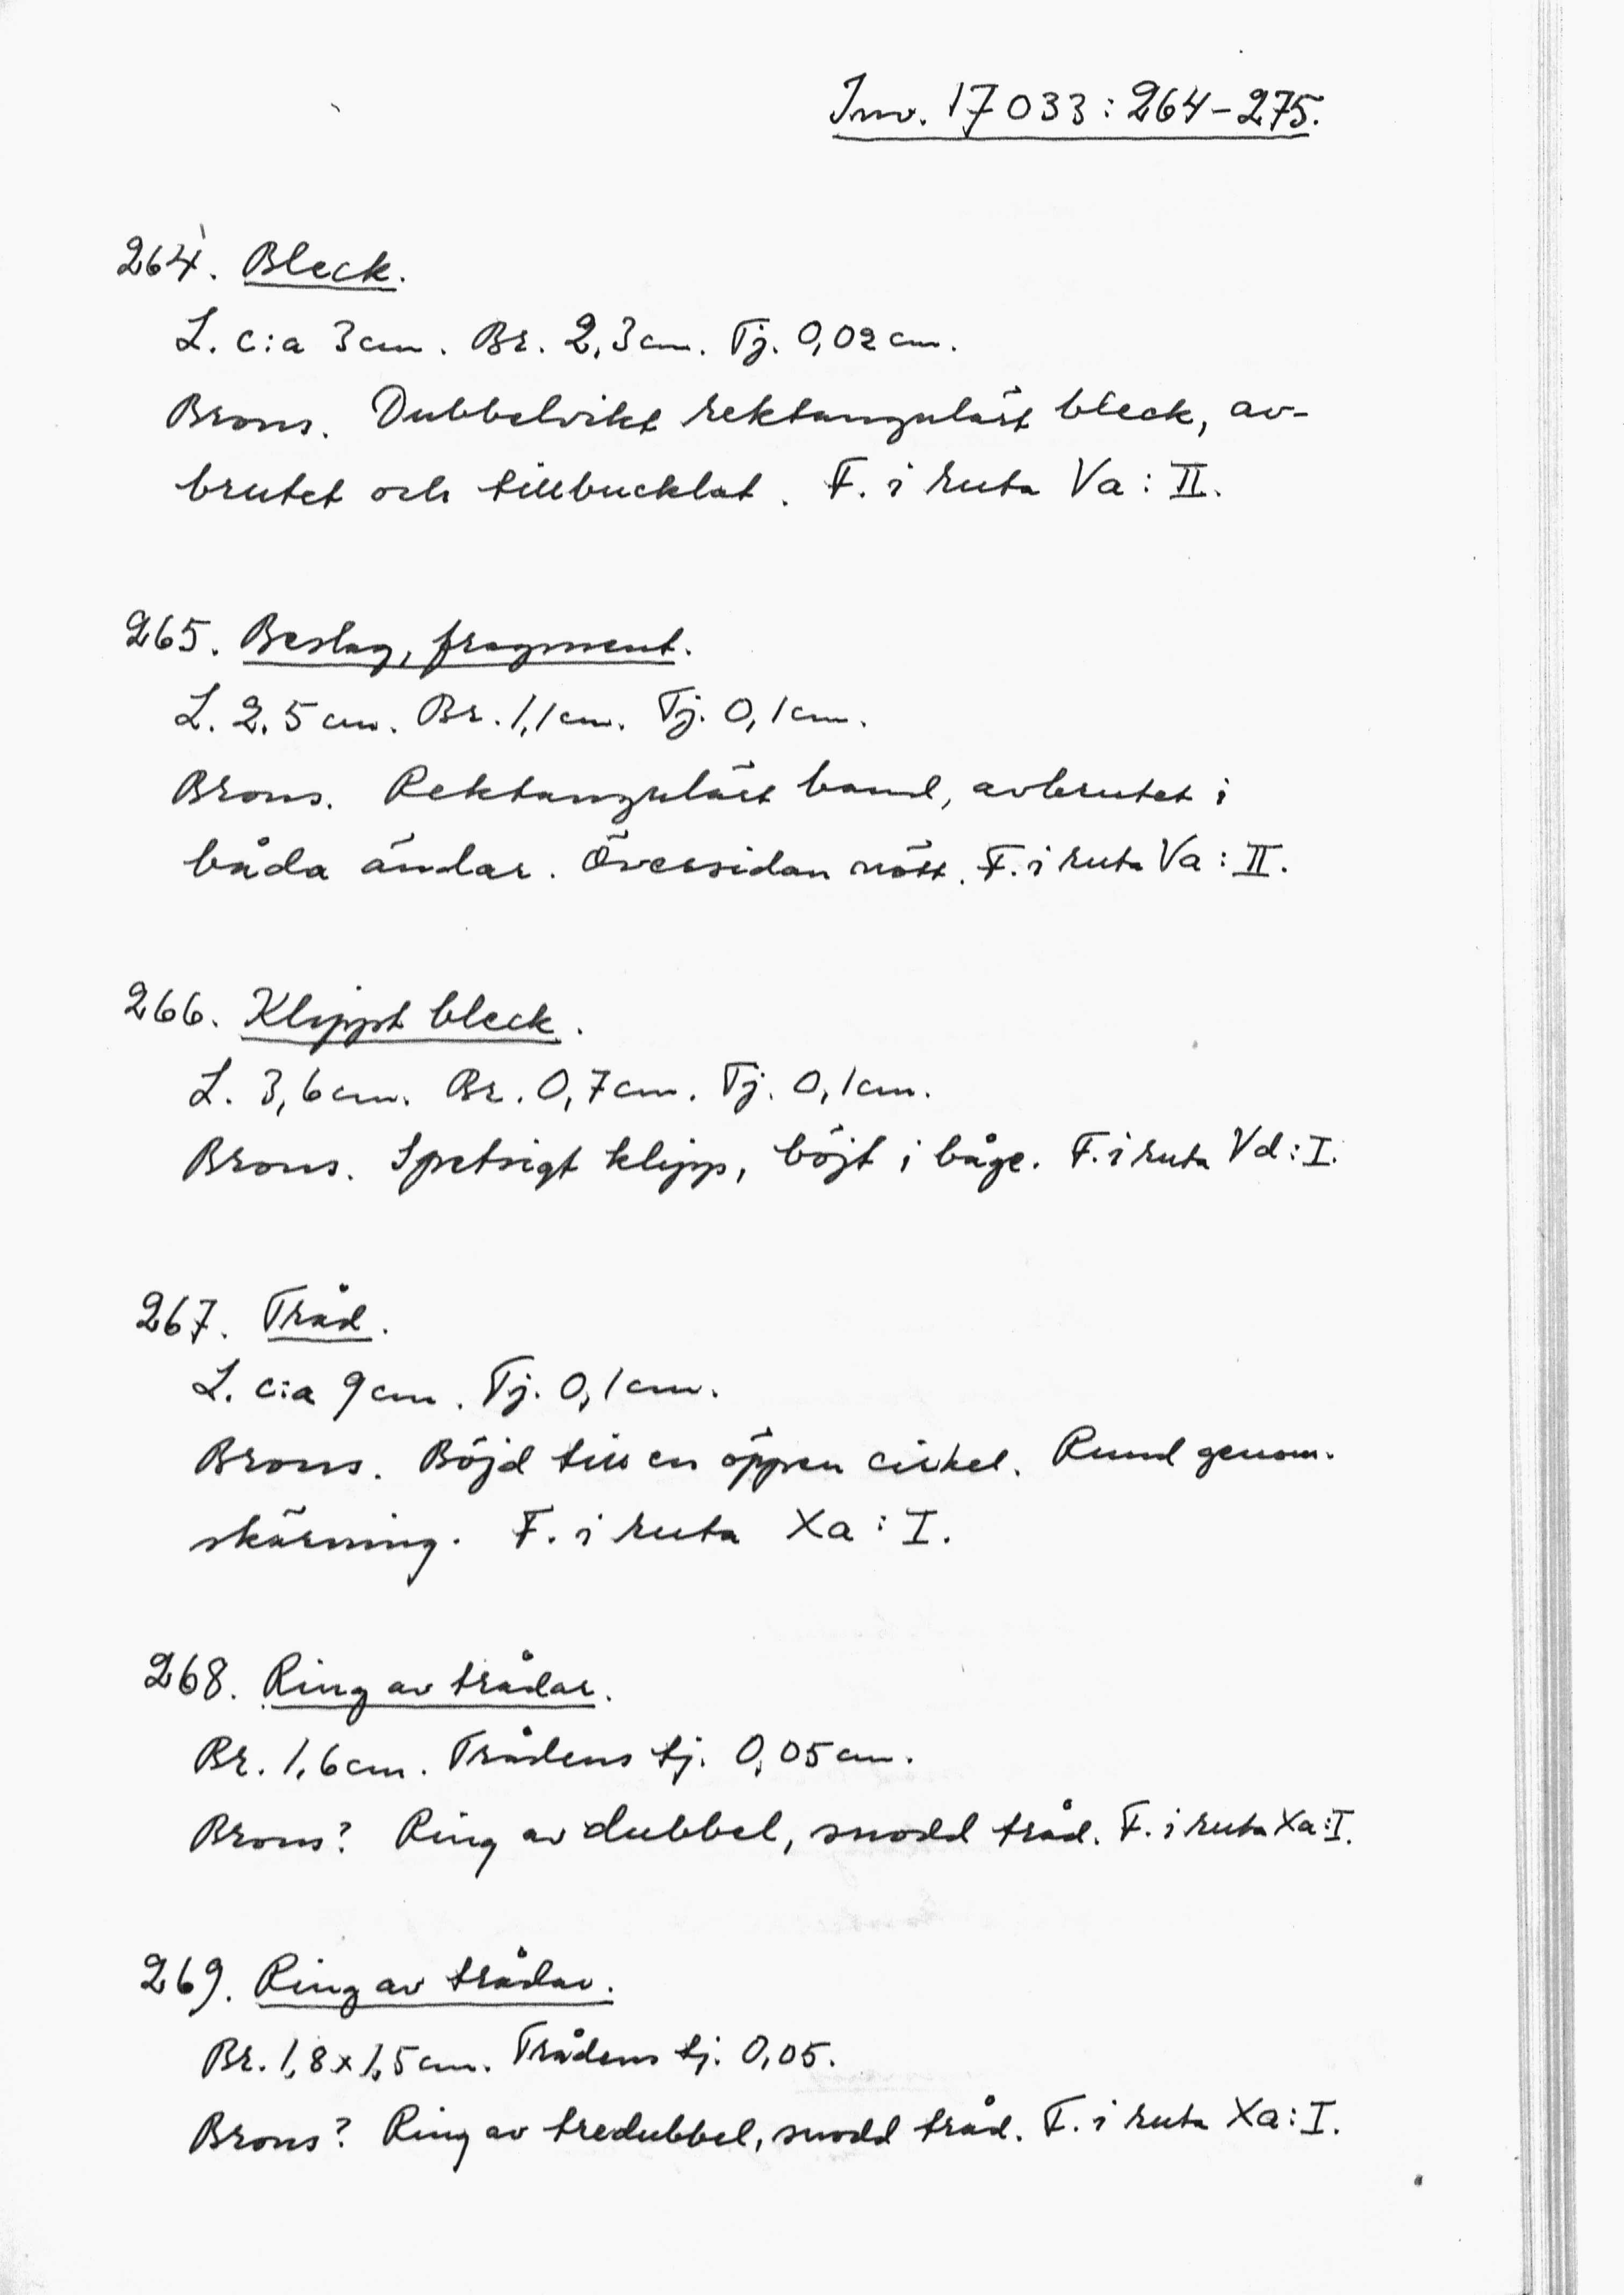 Inv. 17033:264-275.
264. Bleck.
L. c:a 3 cm. Br. 2,3 cm. Tj. 0,02 cm.
Brons. Dubbelvikt rektangulärt bleck, av-
brutet och tillbucklat. F. i ruta Va:II.
265. Beslag, fragment.
L. 2,5 cm. Br. 1,1 cm. Tj. 0,1 cm.
Brons. Rektangulärt band, avbrutet i
båda ändar. Översidan nött. F. i ruta Va:II.
266. Klippt bleck.
L. 3,6 cm. Br. 0,7 cm. Tj. 0,1 cm.
Brons. Spetsigt klipp, böjt i båge. F. i ruta Vd:I.
267. Tråd.
L. c:a 9 cm. Tj. 0,1 cm.
Brons. Böjd till en öppen cirkel. Rund genom-
skärning. F. i ruta Xa:I.
268. Ring av trådar.
Br. 1,6 cm. Trådens tj. 0,05 cm.
Brons? Ring av dubbel, snodd tråd. F. i ruta Xa:I.
269. Ring av trådar.
Br. 1,8 x 1,5 cm. Trådens tj. 0,05.
Brons? Ring av tredubbel, snodd tråd. F. i ruta Xa:I.